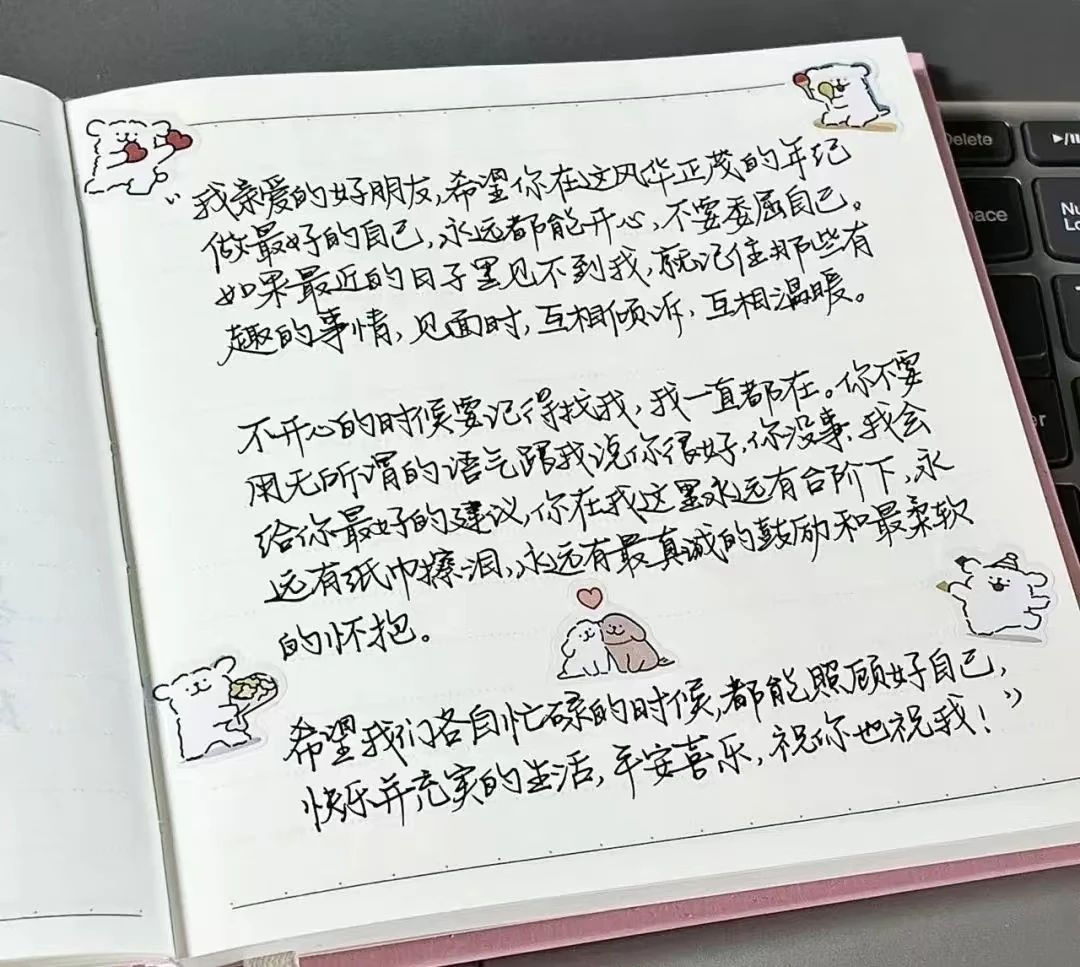 “我亲爱的好朋友,希望你在这风华正茂的年纪
做最好的自己,永远都能开心,不要委屈自己。
如果最近的日子里见不到我,就记住那些有
趣的事情,见面时,互相倾诉,互相温暖。
不开心的时候要记得找我,我一直都在。你不要
用无所谓的语气跟我说你很好,你没事,我会
给你最好的建议,你在我这里永远有台阶下,永
远有纸巾擦泪,永远有最真诚的鼓励和最柔软
的怀抱。
希望我们各自忙碌的时候,都能照顾好自己,
快乐并充实的生活,平安喜乐,祝你也祝我!”
Delete
▶/II
pace
Nu
Lo